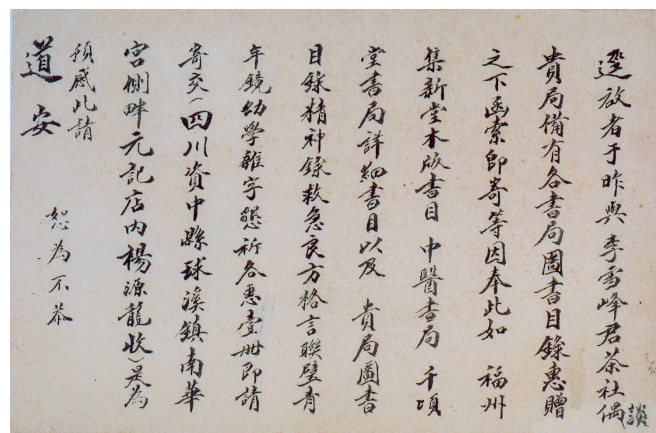 選啟者于昨與李雪峰君茶社偶談
貴局備有各書局圖書目錄惠贈
之下函索即寄等因奉此如 福州
集新堂木版書目 中醫書局 千頃
堂書局詳細書目以及 貴局圖書
目錄精神錄救急良方格言聯璧青
年鏡幼學雜字懇祈各惠壹冊即請
寄交(四川資中縣球溪鎮南華
宮側畔元記店内楊源龍收)是為
預感此請
道安
恕為不恭